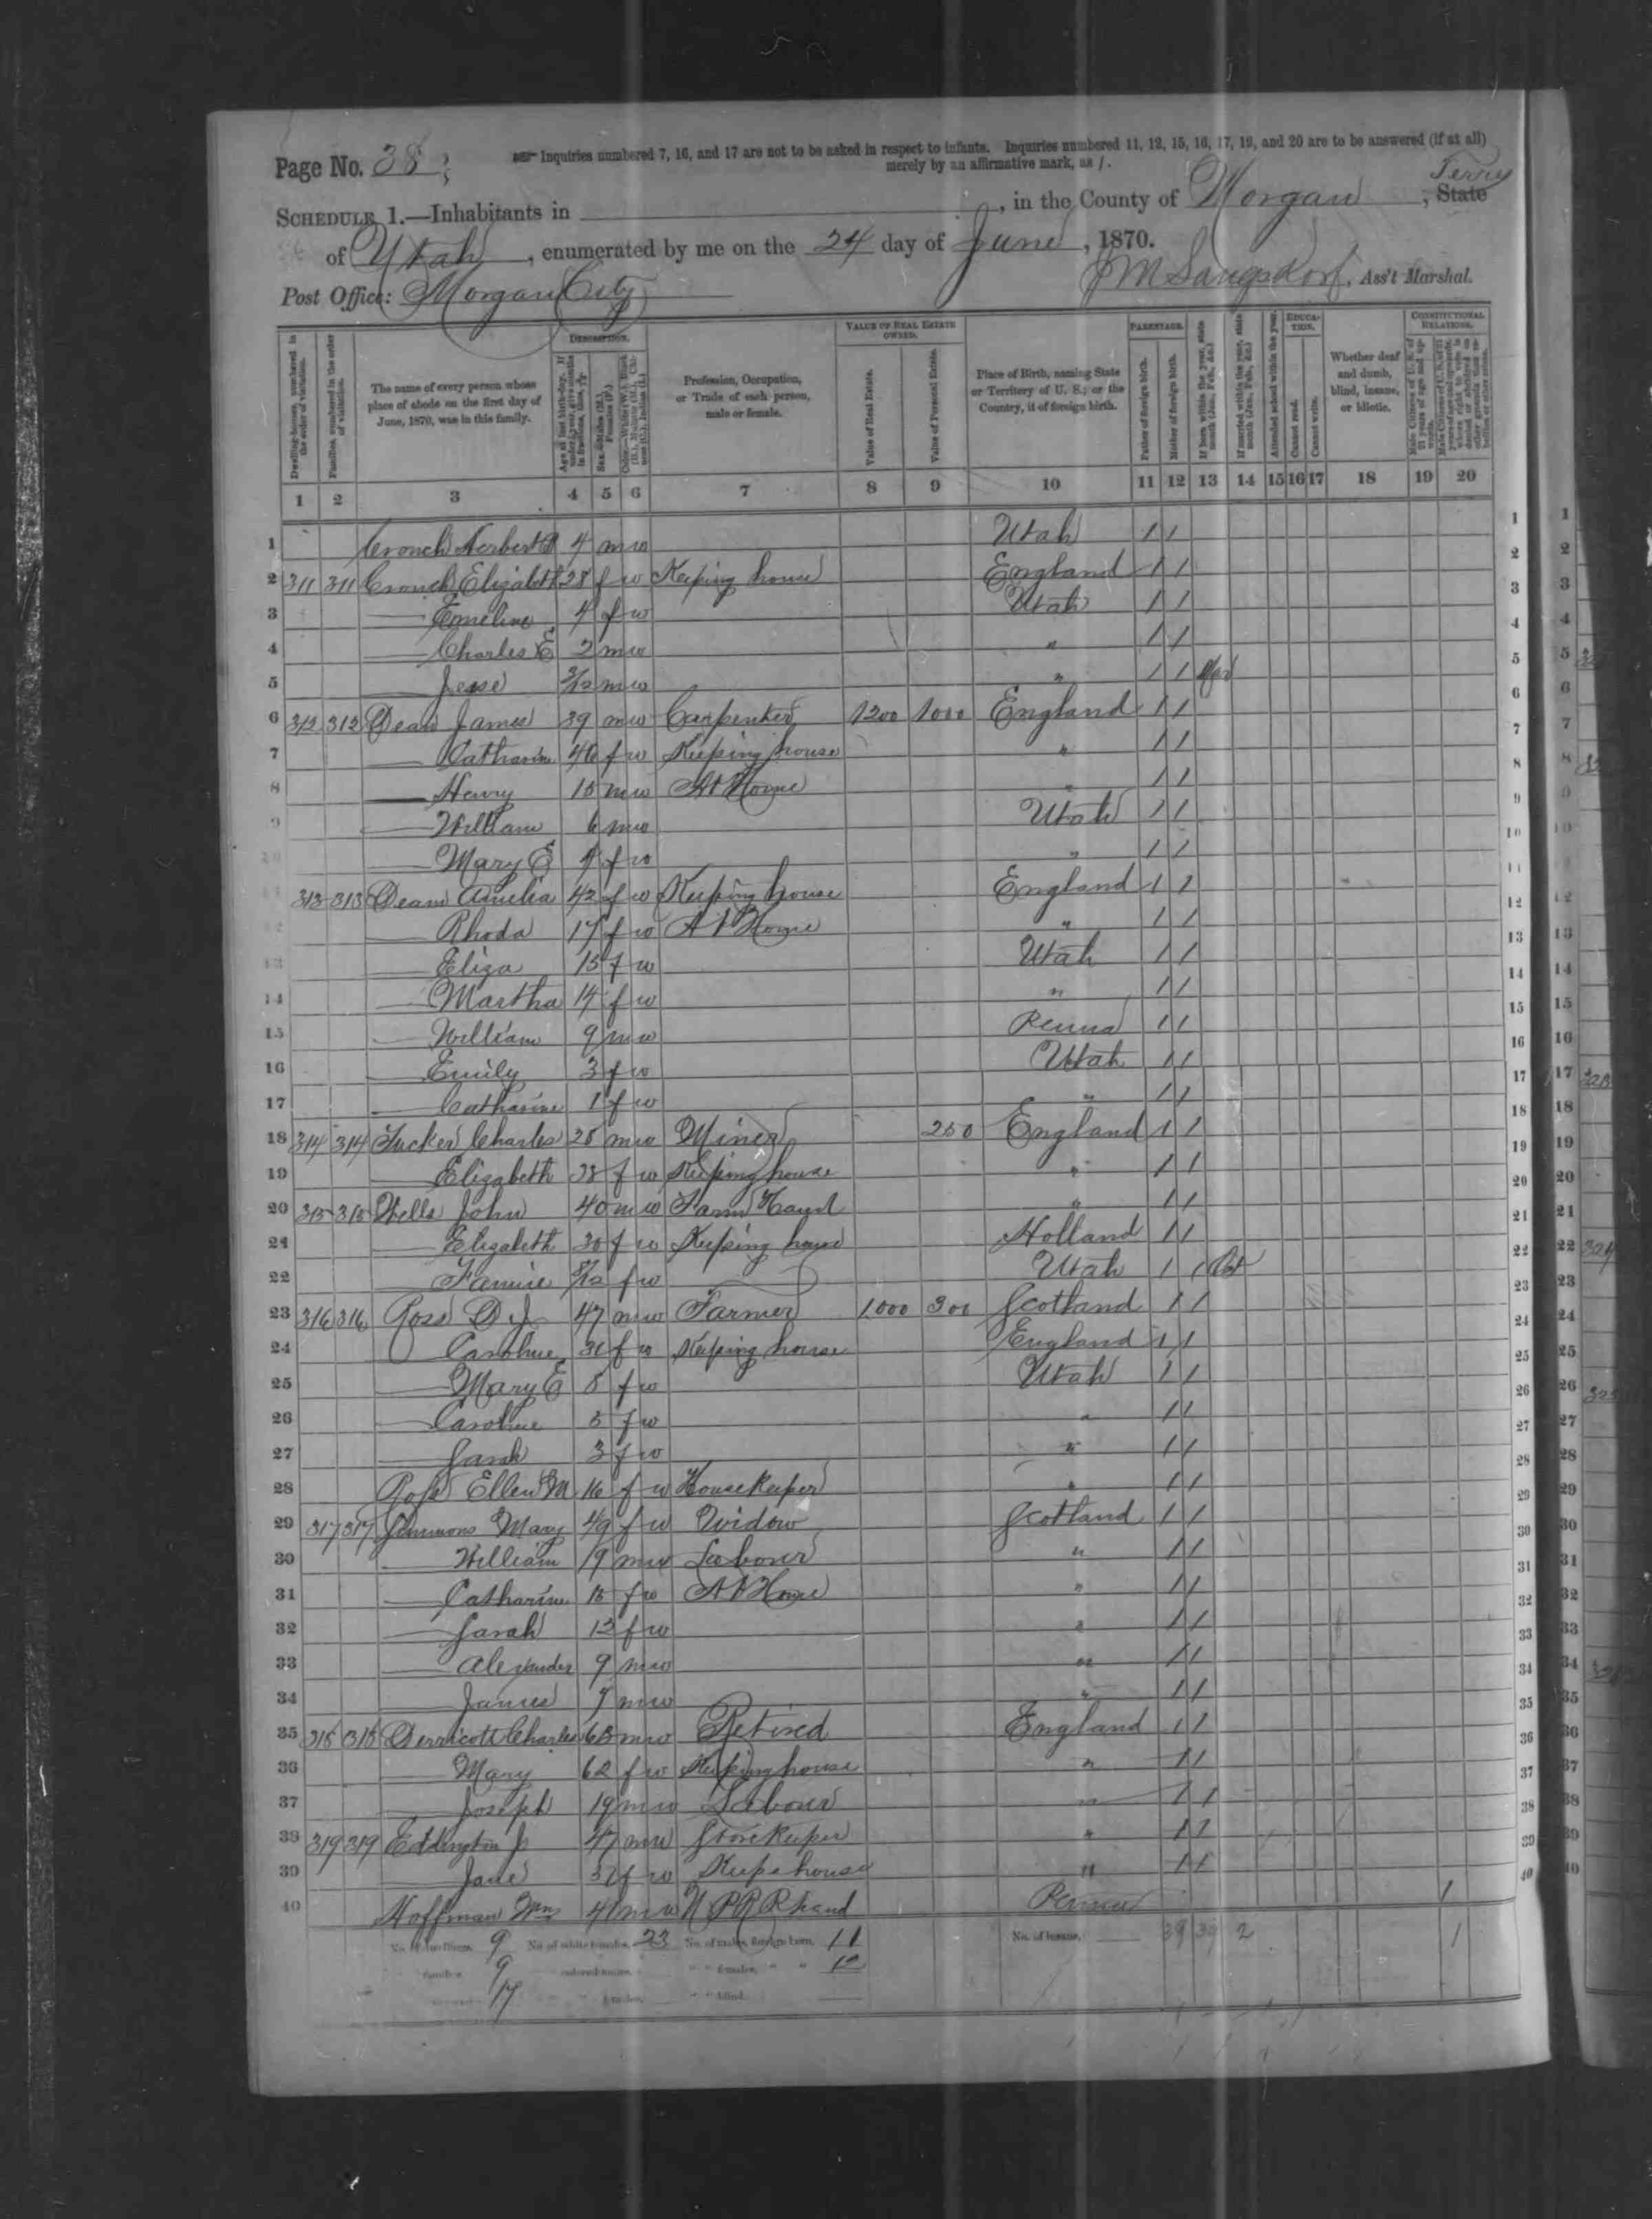 Page No. 38
Inquiries numbered 7, 16, and 17 are not to be asked in respect to infants. Inquiries numbered 11, 12, 15, 16, 17, 19, and 20 are to be answered (if at all)
merely by an affirmative mark, as /.
Terry
SCHEDULE 1.—Inhabitants in , in the County of Morgan , State
of Utah , enumerated by me on the 24 day of June , 1870.
Post Office: Morgan City
Ass't Marshal.
Dwelling-houses, numbered in the order of visitation.
Families, numbered in the order of visitation.
The name of every person whose place of abode on the first day of June, 1870, was in this family.
DESCRIPTION.
Profession, Occupation, or Trade of each person, male or female.
VALUE OF REAL ESTATE OWNED.
Value of Real Estate.
Value of Personal Estate.
Place of Birth, naming State or Territory of U. S.; or the Country, if of foreign birth.
PARENTAGE.
Father of foreign birth.
Mother of foreign birth.
If born within the year, state month (Jan. Feb., &c.)
If married within the year, state month (Jan. Feb., &c.)
Attended school within the year.
EDUCATION.
Cannot read.
Cannot write.
Whether deaf and dumb, blind, insane, or idiotic.
CONSTITUTIONAL RELATIONS.
1 2 3 4 5 6 7 8 9 10 11 12 13 14 15 16 17 18 19 20
1 Crouch Herbert 4 m w Utah 1 1
2 311 311 Crouch Elizabeth 28 f w Keeping house England 1 1
3 — Emeline 4 f w Utah 1 1
4 — Charles E 2 m w " 1 1
5 — Jesse 2/12 m w " 1 1
6 312 312 Dean James 39 m w Carpenter 1200 1000 England 1 1
7 — Catharine 46 f w Keeping house " 1 1
8 — Henry 15 m w At Home " 1 1
9 — William 6 m w Utah 1 1
10 — Mary E 4 f w " 1 1
11 313 313 Dean Amelia 42 f w Keeping house England 1 1
12 — Rhoda 17 f w At Home " 1 1
13 — Eliza 15 f w Utah 1 1
14 — Martha 14 f w " 1 1
15 — William 9 m w Penna 1 1
16 — Emily 3 f w Utah 1 1
17 — Catharine 1 f w " 1 1
18 314 314 Tucker Charles 28 m w Miner 250 England 1 1
19 — Elizabeth 38 f w Keeping house " 1 1
20 315 315 Wells John 40 m w Farm Hand " 1 1
21 — Elizabeth 30 f w Keeping house Holland 1 1
22 — Fannie 8/12 f w Utah 1 1 Oct
23 316 316 Ross D J 47 m w Farmer 1000 300 Scotland 1 1
24 — Caroline 31 f w Keeping house England 1 1
25 — Mary E 8 f w Utah 1 1
26 — Caroline 5 f w " 1 1
27 — Sarah 3 f w " 1 1
28 Ross Ellen M 16 f w Housekeeper " 1 1
29 317 317 Simmons Mary 49 f w Widow Scotland 1 1
30 — William 19 m w Laborer " 1 1
31 — Catharine 15 f w At Home " 1 1
32 — Sarah 13 f w " 1 1
33 — Alexander 9 m w " 1 1
34 — James 7 m w " 1 1
35 318 318 Derricott Charles 65 m w Retired England 1 1
36 — Mary 62 f w Keeping house " 1 1
37 — Joseph 19 m w Laborer " 1 1
38 319 319 Eddington J 47 m w Store Keeper " 1 1
39 — Jane 51 f w Keeps house " 1 1
40 Hoffman Wm 41 m w U P R R hand Penna 1
No. of dwellings, 9 No. of white females, 23 No. of males, foreign born, 11 No. of insane, 39 39 2 1
" families, 9 " " females, " " 12
17 " " blind,